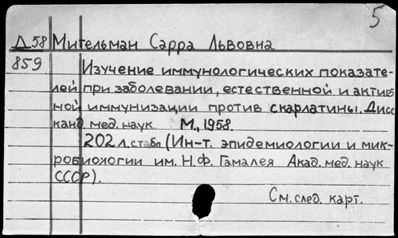 5
Д58 Мительман Сарра Львовна
859 Изучение иммунологических показате-
лей при заболевании, естественной и актив
ной иммунизации против скарлатины. Дисс
канд. мед. наук. М., 1958.
202 л. с табл (Ин-т. эпидемиологии и мик-
робиологии им. Н.Ф. Гамалея Акад. мед. наук
СССР).
См. след. карт.